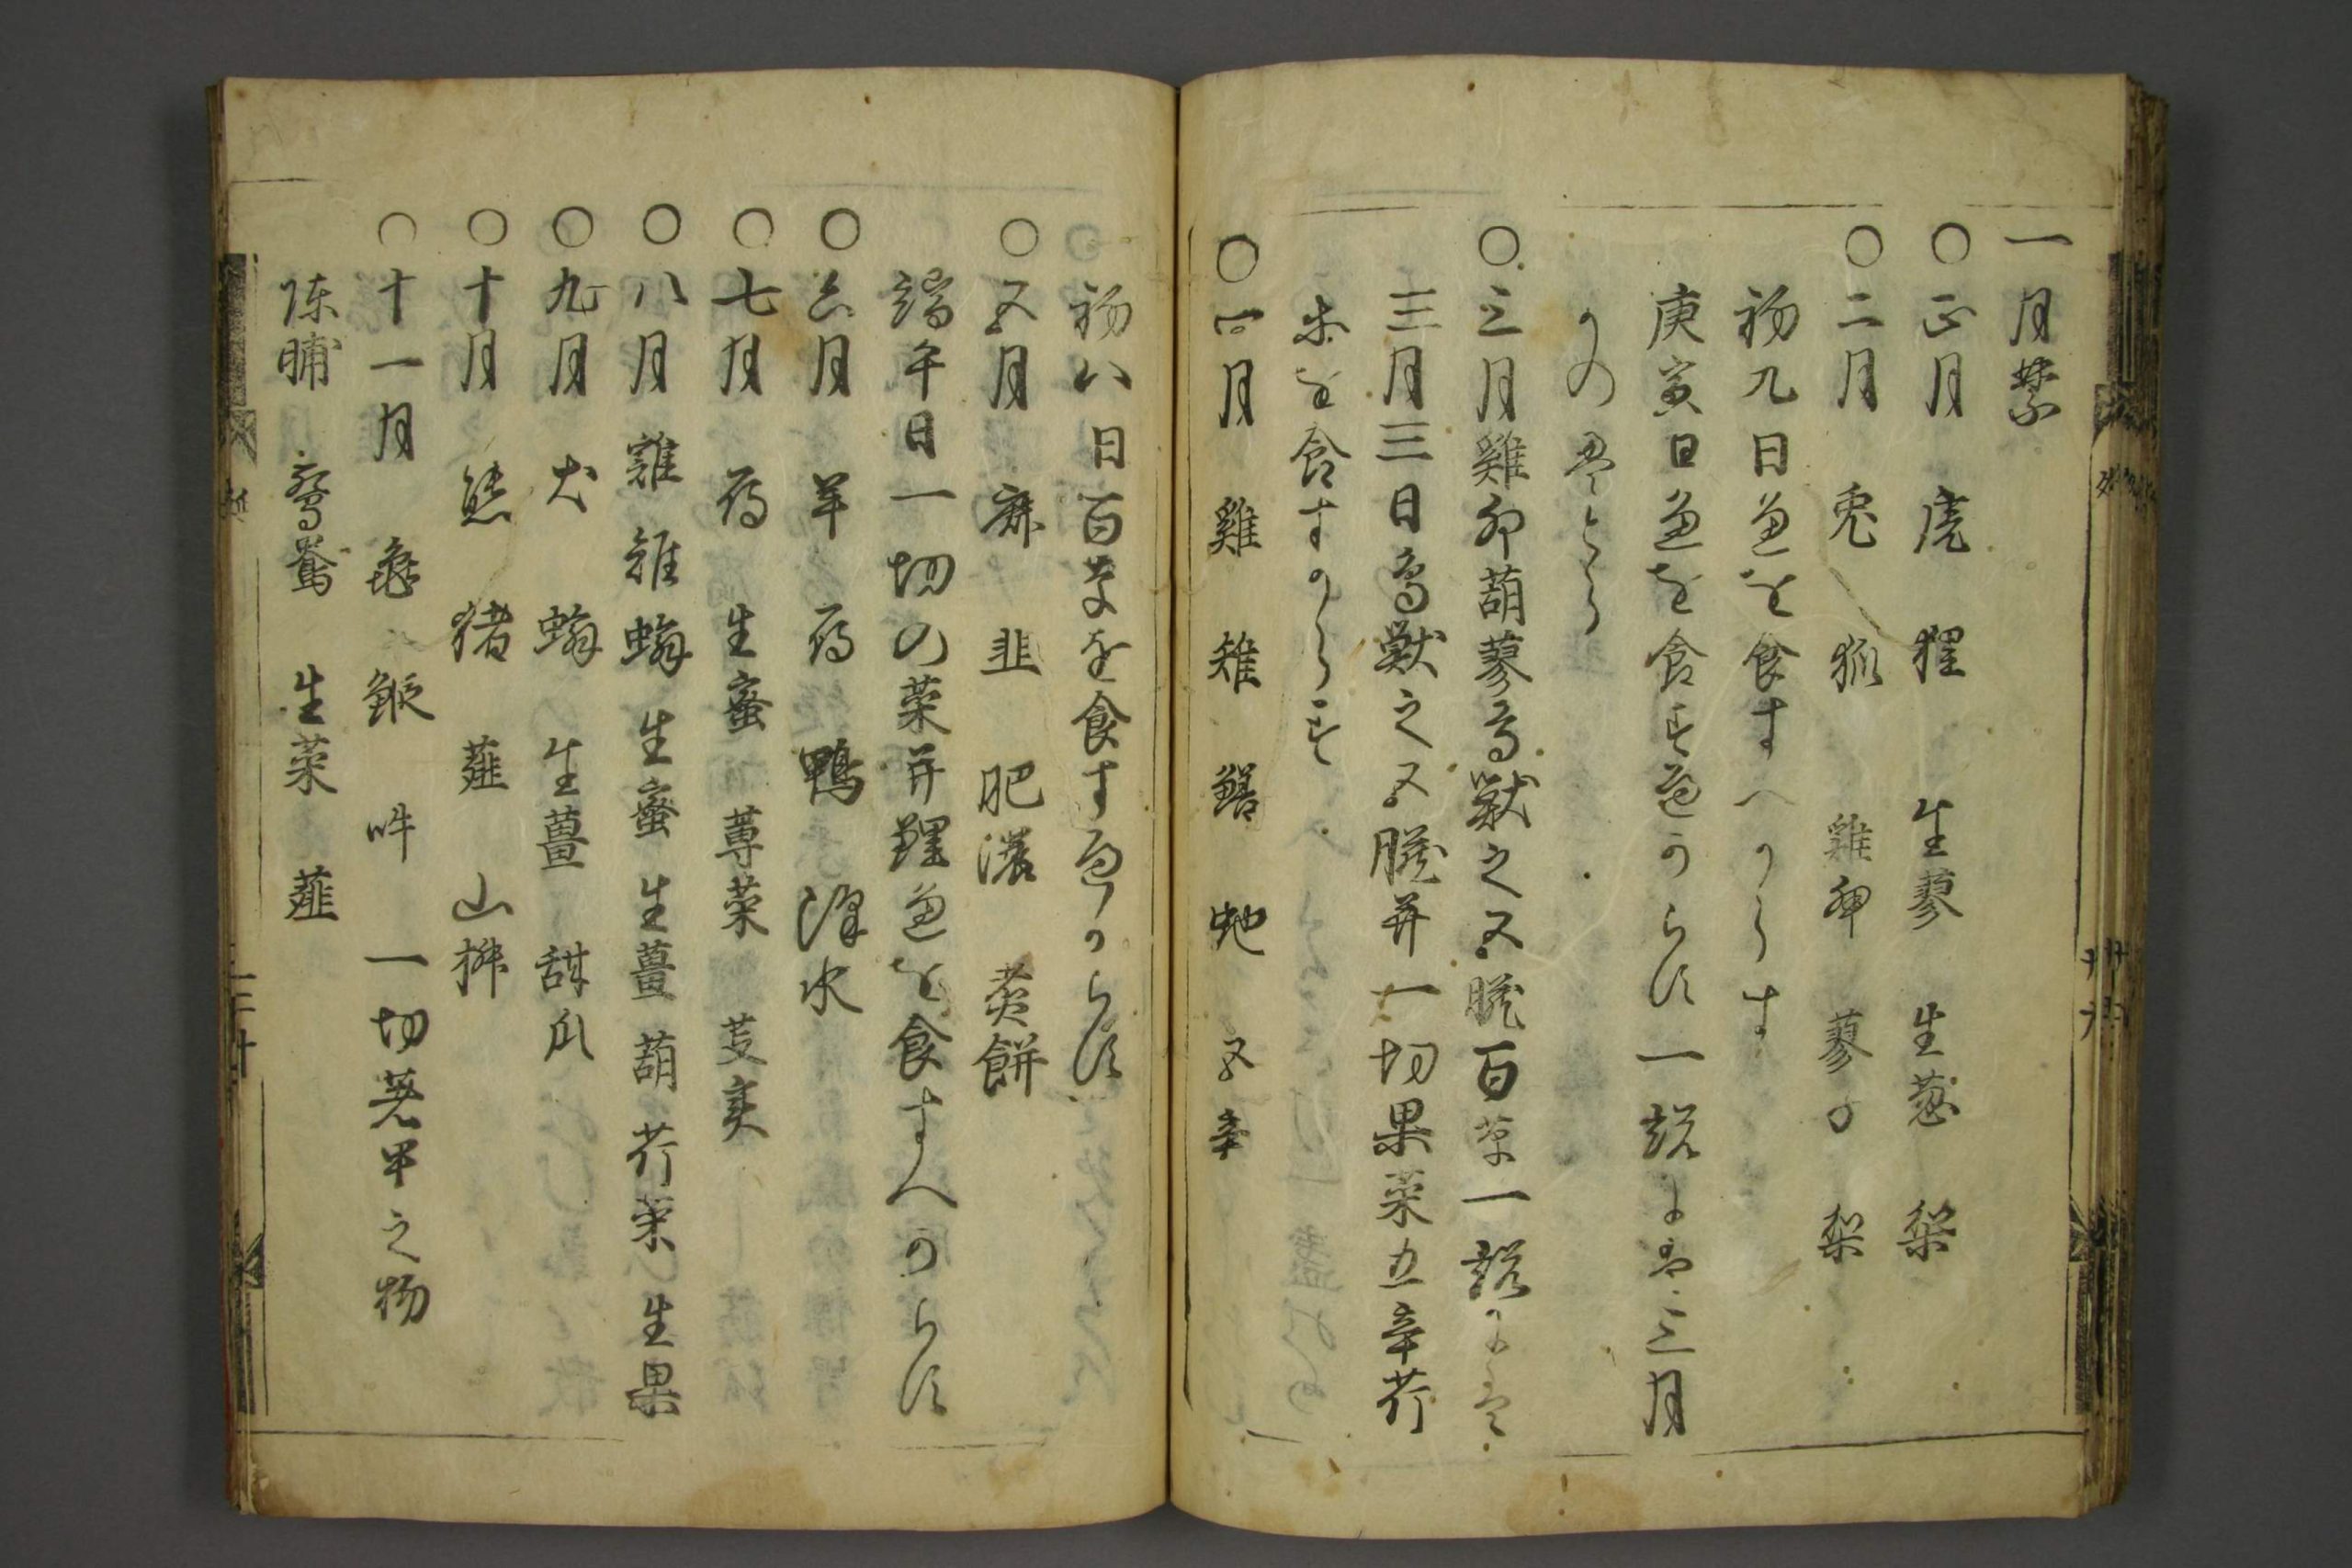 一月禁
○正月 虎 狸 生蓼 生葱 梨
○二月 兎 狐 雞卵 蓼子 梨
初九日魚を食すへからす
庚寅日魚を食す遍からす一説には三月
かの
○三月雞卵葫蓼鳥獣之五臓百草一説には
三月三日鳥獣之五臓并一切果菜五辛芹
ホを食すからす
○四月 雞 雉 鱔 蛇 五辛
初八日百草を食す遍からす
○五月 麻 韭 肥濃 煮餅
端午日一切の菜并鯉魚を食すへからす
○六月 羊 鴈 鴨 澤水
○七月 鴈 生蜜 蓴菜 芰実
○八月 雞 雉 蟹 生蜜 生薑 葫 芹菜 生果
○九月 犬 蟹 生薑 甜瓜
○十月 熊 猪 薤 山椒
○十一月 亀 鼈 一切 甲之物
陳脯 鴛鴦 生菜 薤